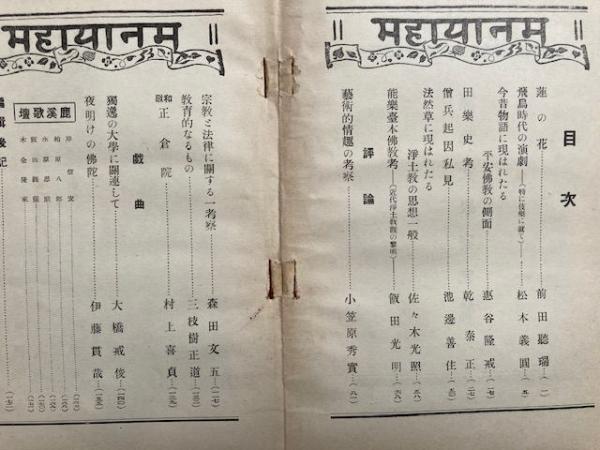 महायानम्
目次
蓮の花 前田聽瑞 (一)
飛鳥時代の演劇――(特に伎樂に就て)―― 松本義圓 (五)
今昔物語に現はれたる
平安佛教の側面 惠谷隆戒 (一七)
田樂史考 乾泰正 (二七)
僧兵起因私見 池邊善住
法然草に現はれたる
淨土教の思想一般 佐々木光照
能樂臺本佛教考 飯田光明
評論
藝術的情趣の考察 小笠原秀實
महायानम्
宗教と法律に關する一考察 森田文五 (一一七)
教育的なるもの 三枝樹正道
和戲 正倉院 村上喜貞
戲曲
獨逸の大學に關連して 大橋戒俊
夜明けの佛陀 伊藤貫哉
鹿溪歌壇
編輯後記